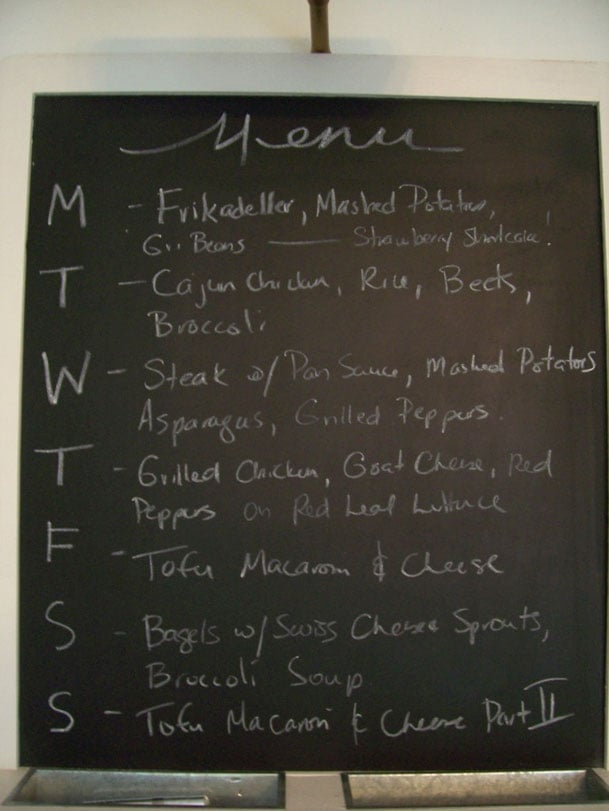 Menu
M - Frikadeller, Mashed Potatoes,
Gr. Beans — Strawberry Shortcake!
T - Cajun Chicken, Rice, Beets,
Broccoli
W - Steak w/ Pan Sauce, Mashed Potatoes
Asparagus, Grilled Peppers.
T - Grilled Chicken, Goat Cheese, Red
Peppers on Red Leaf Lettuce
F - Tofu Macaroni & Cheese
S - Bagels w/ Swiss Cheese Sprouts,
Broccoli Soup
S - Tofu Macaroni & Cheese Part II